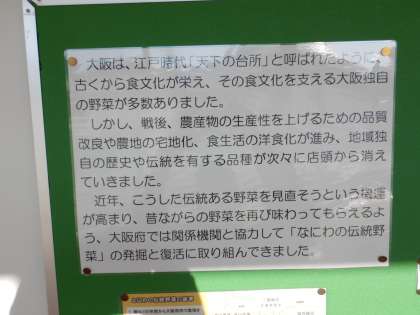 大阪は、江戸時代「天下の台所」と呼ばれたように、
古くから食文化が栄え、その食文化を支える大阪独自
の野菜が多数ありました。
しかし、戦後、農産物の生産性を上げるための品質
改良や農地の宅地化、食生活の洋食化が進み、地域独
自の歴史や伝統を有する品種が次々に店頭から消え
ていきました。
近年、こうした伝統ある野菜を見直そうという機運
が高まり、昔ながらの野菜を再び味わってもらえるよ
う、大阪府では関係機関と協力して「なにわの伝統野
菜」の発掘と復活に取り組んできました。